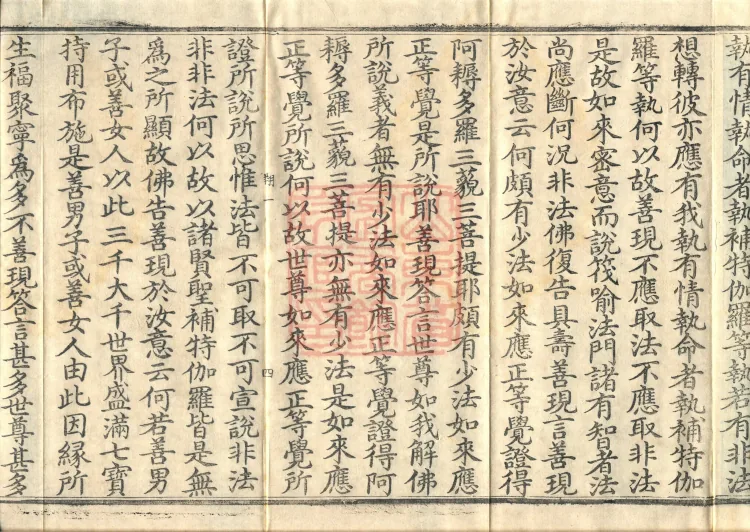 執有情執命者執補特伽羅等執若有非法
想轉彼亦應有我執有情執命者執補特伽
羅等執何以故善現不應取法不應取非法
是故如來密意而說筏喻法門諸有智者法
尚應斷何況非法佛復告具壽善現言善現
於汝意云何頗有少法如來應正等覺證得
阿耨多羅三藐三菩提耶頗有少法如來應
正等覺是所說耶善現答言世尊如我解佛
所說義者無有少法如來應正等覺證得阿
耨多羅三藐三菩提亦無有少法是如來應
正等覺所說何以故世尊如來應正等覺所
證所說所思惟法皆不可取不可宣說非法
翔一 四
非非法何以故以諸賢聖補特伽羅皆是無
爲之所顯故佛告善現於汝意云何若善男
子或善女人以此三千大千世界盛滿七寶
持用布施是善男子或善女人由此因緣所
生福聚寧爲多不善現答言甚多世尊甚多